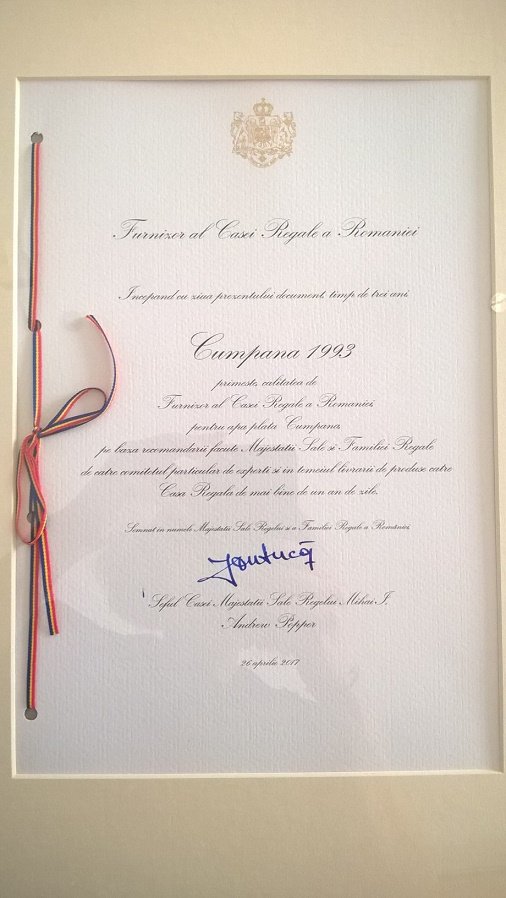 Furnizor al Casei Regale a Romaniei
Incepand cu ziua prezentului document, timp de trei ani,
Cumpana 1993
primeste, calitatea de
Furnizor al Casei Regale a Romaniei,
pentru apa plata Cumpana,
pe baza recomandarii facute Majestatii Sale si Familiei Regale
de catre comitetul particular de experti si in temeiul livrarii de produse catre
Casa Regala de mai bine de un an de zile.
Semnat in numele Majestatii Sale Regelui si a Familiei Regale a României,
Seful Casei Majestatii Sale Regelui Mihai I.
Andrew Popper
26 aprilie 2017